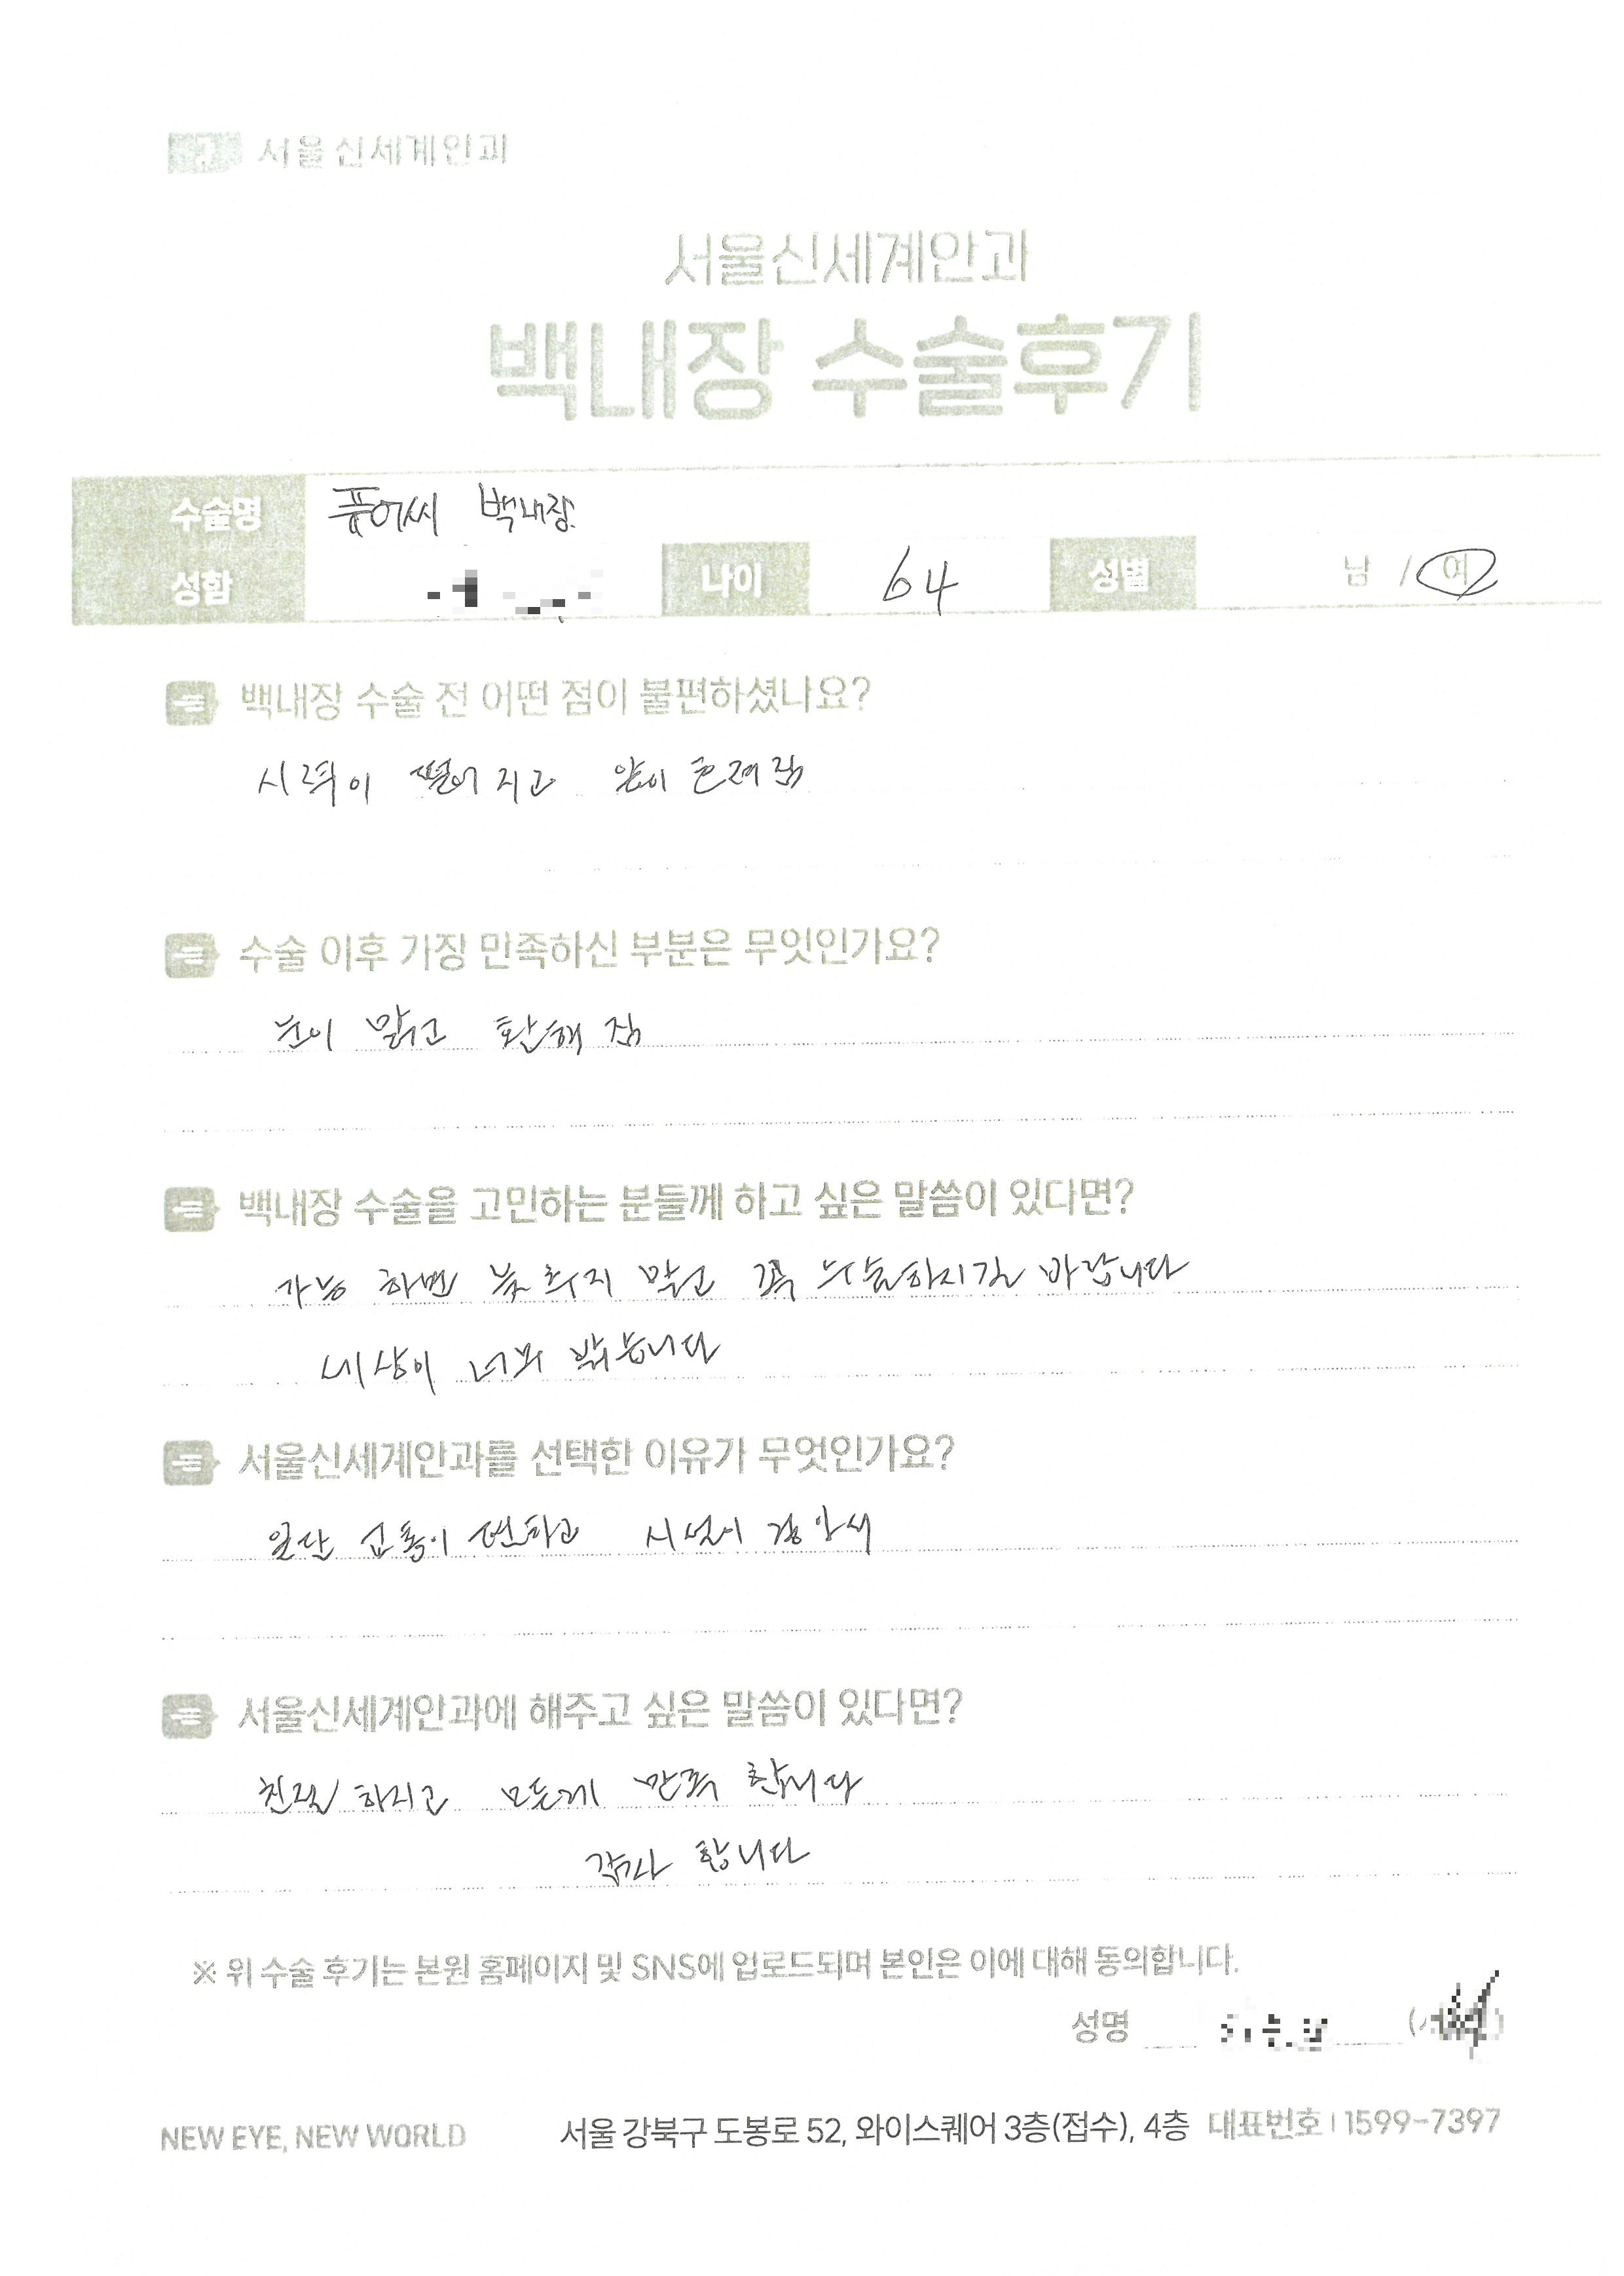 서울신세계안과
서울신세계안과
백내장 수술후기
수술명 퓨어씨 백내장
성함 나이 64 성별 남 / 여
백내장 수술 전 어떤 점이 불편하셨나요?
시력이 떨어지고 앞이 흐려짐
수술 이후 가장 만족하신 부분은 무엇인가요?
눈이 맑고 환해 짐
백내장 수술을 고민하는 분들께 하고 싶은 말씀이 있다면?
가능 하면 늦추지 말고 꼭 수술하시길 바랍니다
세상이 너무 밝습니다
서울신세계안과를 선택한 이유가 무엇인가요?
일단 교통이 편하고 시설이
서울신세계안과에 해주고 싶은 말씀이 있다면?
친절 하시고 모든게 만족 합니다
감사 합니다
※ 위 수술 후기는 본원 홈페이지 및 SNS에 업로드되며 본인은 이에 대해 동의합니다.
성명
NEW EYE, NEW WORLD 서울 강북구 도봉로 52, 와이스퀘어 3층(접수), 4층 대표번호 | 1599-7397